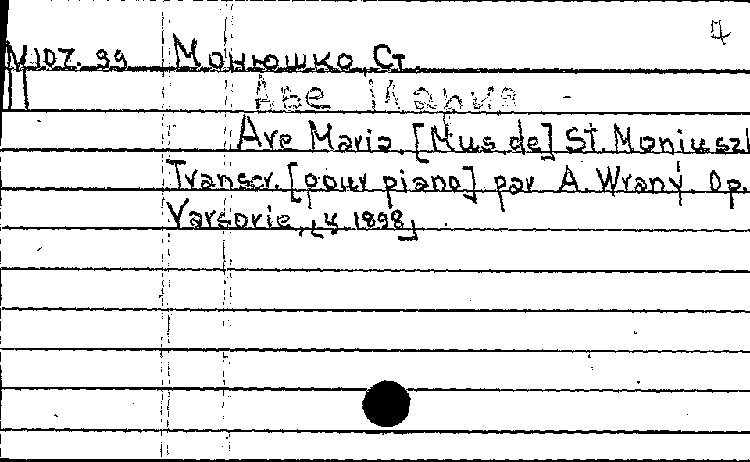 4
М 107. 99 Монюшко Ст.
Аве Мария
Ave Maria. [Mus de] St. Moniusz
Transcr. [pour piano] par A. Wraný. Op.
Varsovie, [ц. 1898]